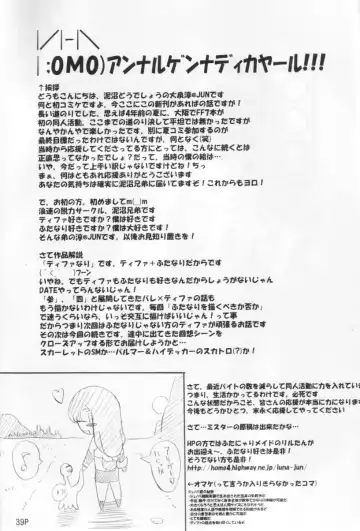 | ;OMO)アンナルゲンナディカヤール!!!
↑挨拶
どうもこんにちは、泥沼どうでしょうの大泉淳@JUNです
何と初コミケですよ、今ここにこの新刊があればの話ですが!
長い道のりでした。思えば4年前の夏に、大阪でFF7本が
初の同人活動、ここまでの道のり決して平坦では無かった…
なんやかんやで楽しかったです。別に夏コミ参加するのが
最終目標だったわけではないんですが、何となく(笑)
当時から応援してくださってる方にとっては、こんなに続くとは
正直思ってなかったでしょ?だって、当時の僕の絵は…
いや、今だって上手い訳じゃないですけどね!ちっ
まぁ、何はともあれ応援ありがとうございます
あなたの気持ちは確実に泥沼兄弟に届いてますぞ!これからもヨロ!
で、お初の方、初めましてm(_)m
浪速の脱力サークル、泥沼兄弟です
ティファが好きですか?僕は好きです
ふたなりが好きですか?僕は大好きです!
そんな弟の淳@JUNです、以後お見知り置きを!
さて作品解説
「ティファなり」です、ティファ+ふたなりだからです
いやね、でもティファもふたなりも好きなんだからしょうがないじゃん
DATEやってらんないじゃん!
「参」、「四」と展開してきたバレ×ティファの話も
もう描かないわけないです、毎回「ふたなりを描くべきか否か」
で迷うくらいなら、いっそ交互に描けばいいじゃん!って事
だからつまり次回はふたなりじゃない方のティファが頑張るお話です
その次は今回の続きです、途中に出てきた回想シーンを
クローズアップする形でお届けしようかと…
スカーレットのSMか…パルマー&ハイデッカーのスカトロ(?)か!
さて、最近バイトの数を減らして同人活動に力を入れている
つまり、生活かかってるわけで、必死です
こんな状態だからこそ、皆さんの応援が本当に力になります
今後もどうかひとつ、末永く応援してやってください
さて…ミスターの原稿は出来たかな…
HPの方ではふたにゃりメイドのリルたんが
お出迎え〜、ふたなり好きな方は是非!
そうでない方も是非!
http://home4.highway.ne.jp/luna-jun/
←オマケ(って言うか入りきらなかったコマ)
39P